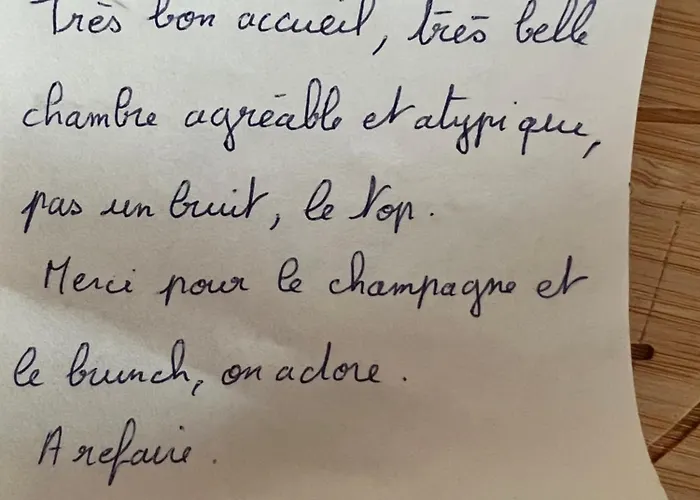 Très bon accueil, très belle
chambre agréable et atypique,
pas un bruit, le top.
Merci pour le champagne et
le brunch, on adore.
A refaire.